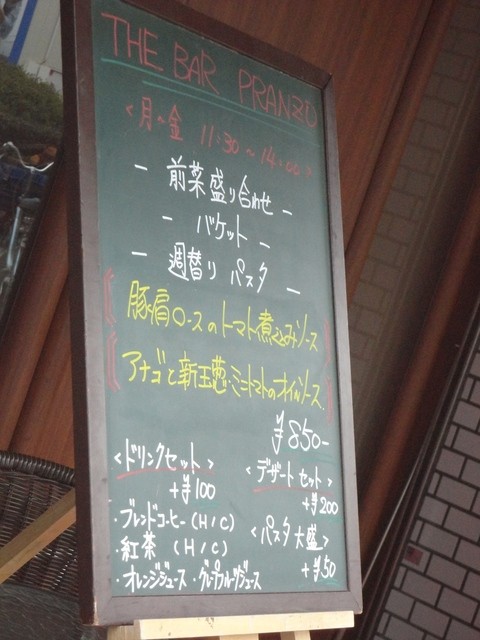 THE BAR PRANZO
<月〜金 11:30〜14:00>
- 前菜盛り合わせ -
- バケット -
- 週替り パスタ -
豚肩ロースのトマト煮込みソース
アナゴと新玉葱・ミニトマトのオイルソース
¥850-
<ドリンクセット>
+¥100
・ブレンドコーヒー (H/C)
・紅茶 (H/C)
・オレンジジュース ・グレープフルーツジュース
<デザートセット>
+¥200
<パスタ大盛>
+¥50